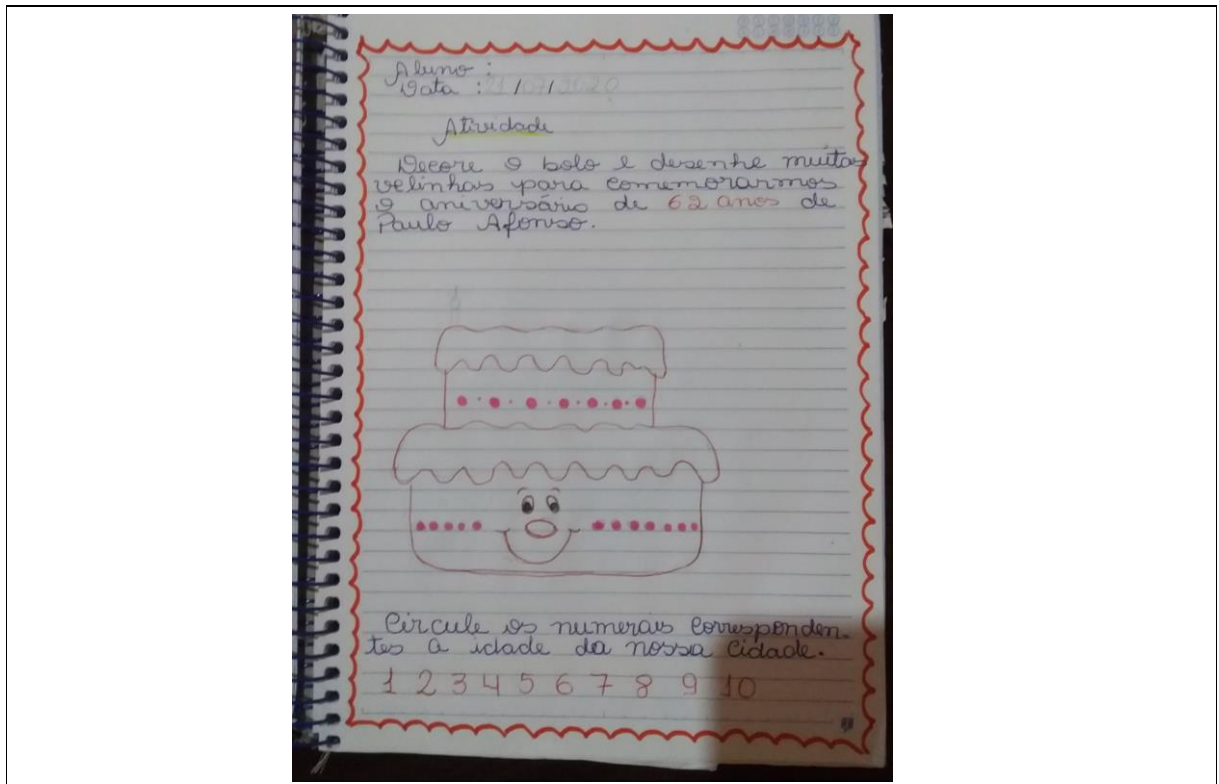 Aluno :
Data : 21/07/2020
Atividade
Decore o bolo e desenhe muitas
velinhas para comemorarmos
o aniversário de 62 anos de
Paulo Afonso.
Circule os numerais corresponden-
tes a idade da nossa Cidade.
1 2 3 4 5 6 7 8 9 10